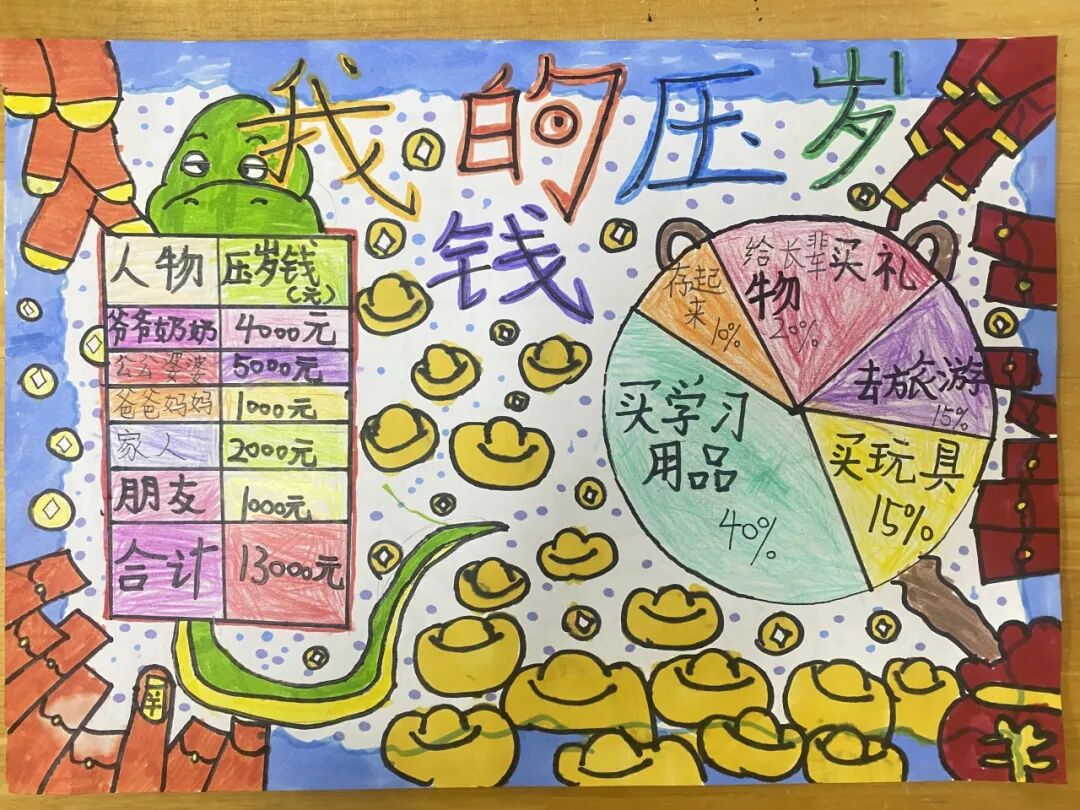 我的压岁
钱
人物 压岁钱(元)
爷爷奶奶 4000元
公公婆婆 5000元
爸爸妈妈 1000元
家人 2000元
朋友 1000元
合计 13000元
存起
来
10%
给长辈买礼
物
20%
去旅游
15%
买学习
用品
40%
买玩具
15%